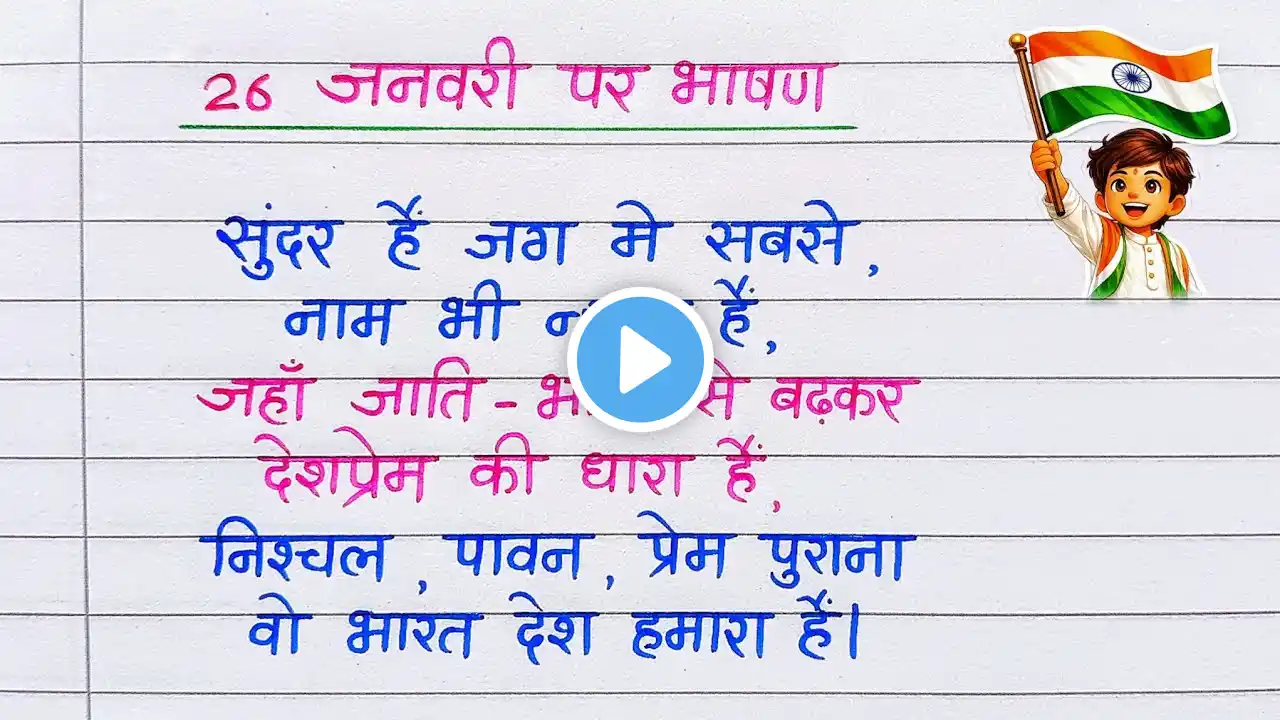 26 जनवरी पर भाषण
सुंदर हैं जग मे सबसे,
नाम भी हैं,
जहाँ जाति - से बढ़कर
देशप्रेम की धारा हैं,
निश्चल, पावन, प्रेम पुराना
वो भारत देश हमारा हैं।